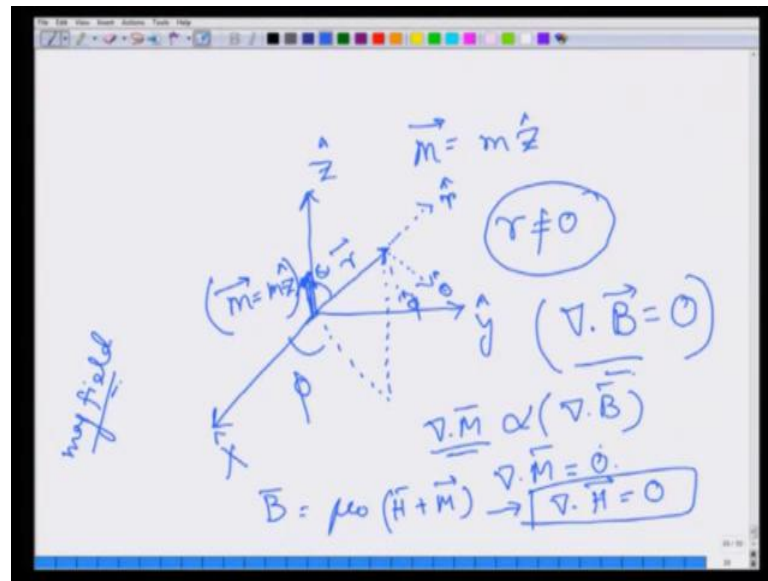 File Edit View Insert Actions Tools Help
B I
\vec{m} = m\hat{z}
\hat{z}
\hat{r}
r ≠ 0
θ
\vec{r}
(\vec{m} = m\hat{z})
\hat{θ}
\hat{φ}
\hat{y}
(∇.\vec{B} = 0)
φ
\hat{x}
mag field
∇.\bar{M} α (∇.\bar{B})
∇.\bar{M} = 0.
\bar{B} = μ0 (\bar{H} + \vec{M}) → ∇.\vec{H} = 0